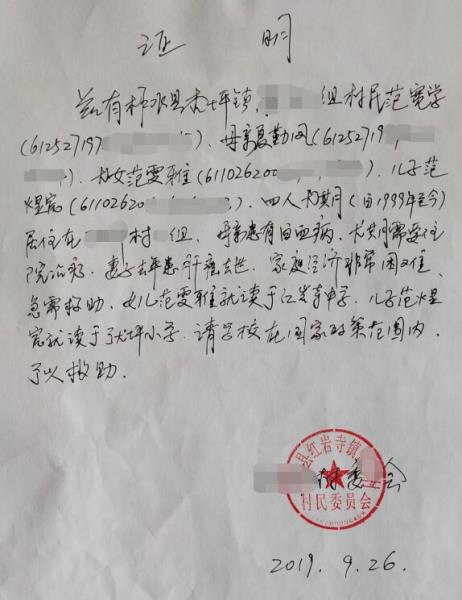 证 明
兹有柞水县杏坪镇 组村民范宽学
(61252719 ). 母亲夏勤风(61252719
). 女范雯雅(61102620 ). 儿子范
煜宸(61102620 ). 四人 (由1999年至今)
居住在 村 组. 母亲患有白血病. 长期需要住
院治疗. 妻子去年患肝癌去世. 家庭经济非常困难.
急需救助. 女儿范雯雅就读于红岩寺中学. 儿子范煜
宸就读于 坪小学. 请学校在国家政策范围内
予以救助.
县红岩寺镇
村委会
村民委员会
2019. 9.26.